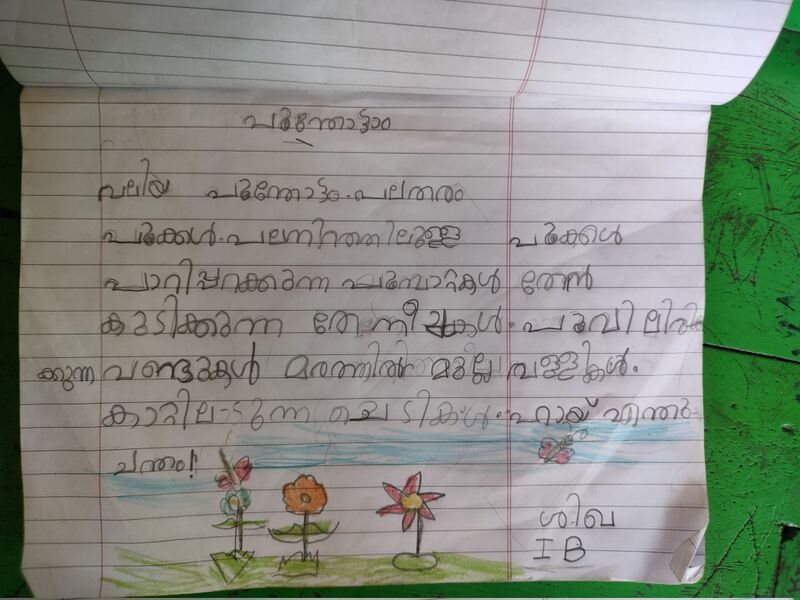 പൂന്തോട്ടം
വലിയ പൂന്തോട്ടം. പലതരം
പൂക്കൾ. പലനിറത്തിലുള്ള പൂക്കൾ
പാറിപ്പറക്കുന്ന പൂമ്പാറ്റകൾ തേൻ
കുടിക്കുന്ന തേനീച്ചകൾ. പൂവിലിരി
ക്കുന്ന വണ്ടുകൾ മരത്തിൽ മുല്ല വള്ളികൾ.
കാറ്റിലാടുന്ന ചെടികൾ. ഹായ് എന്തു
ചന്തം!
ശിഖ
I B